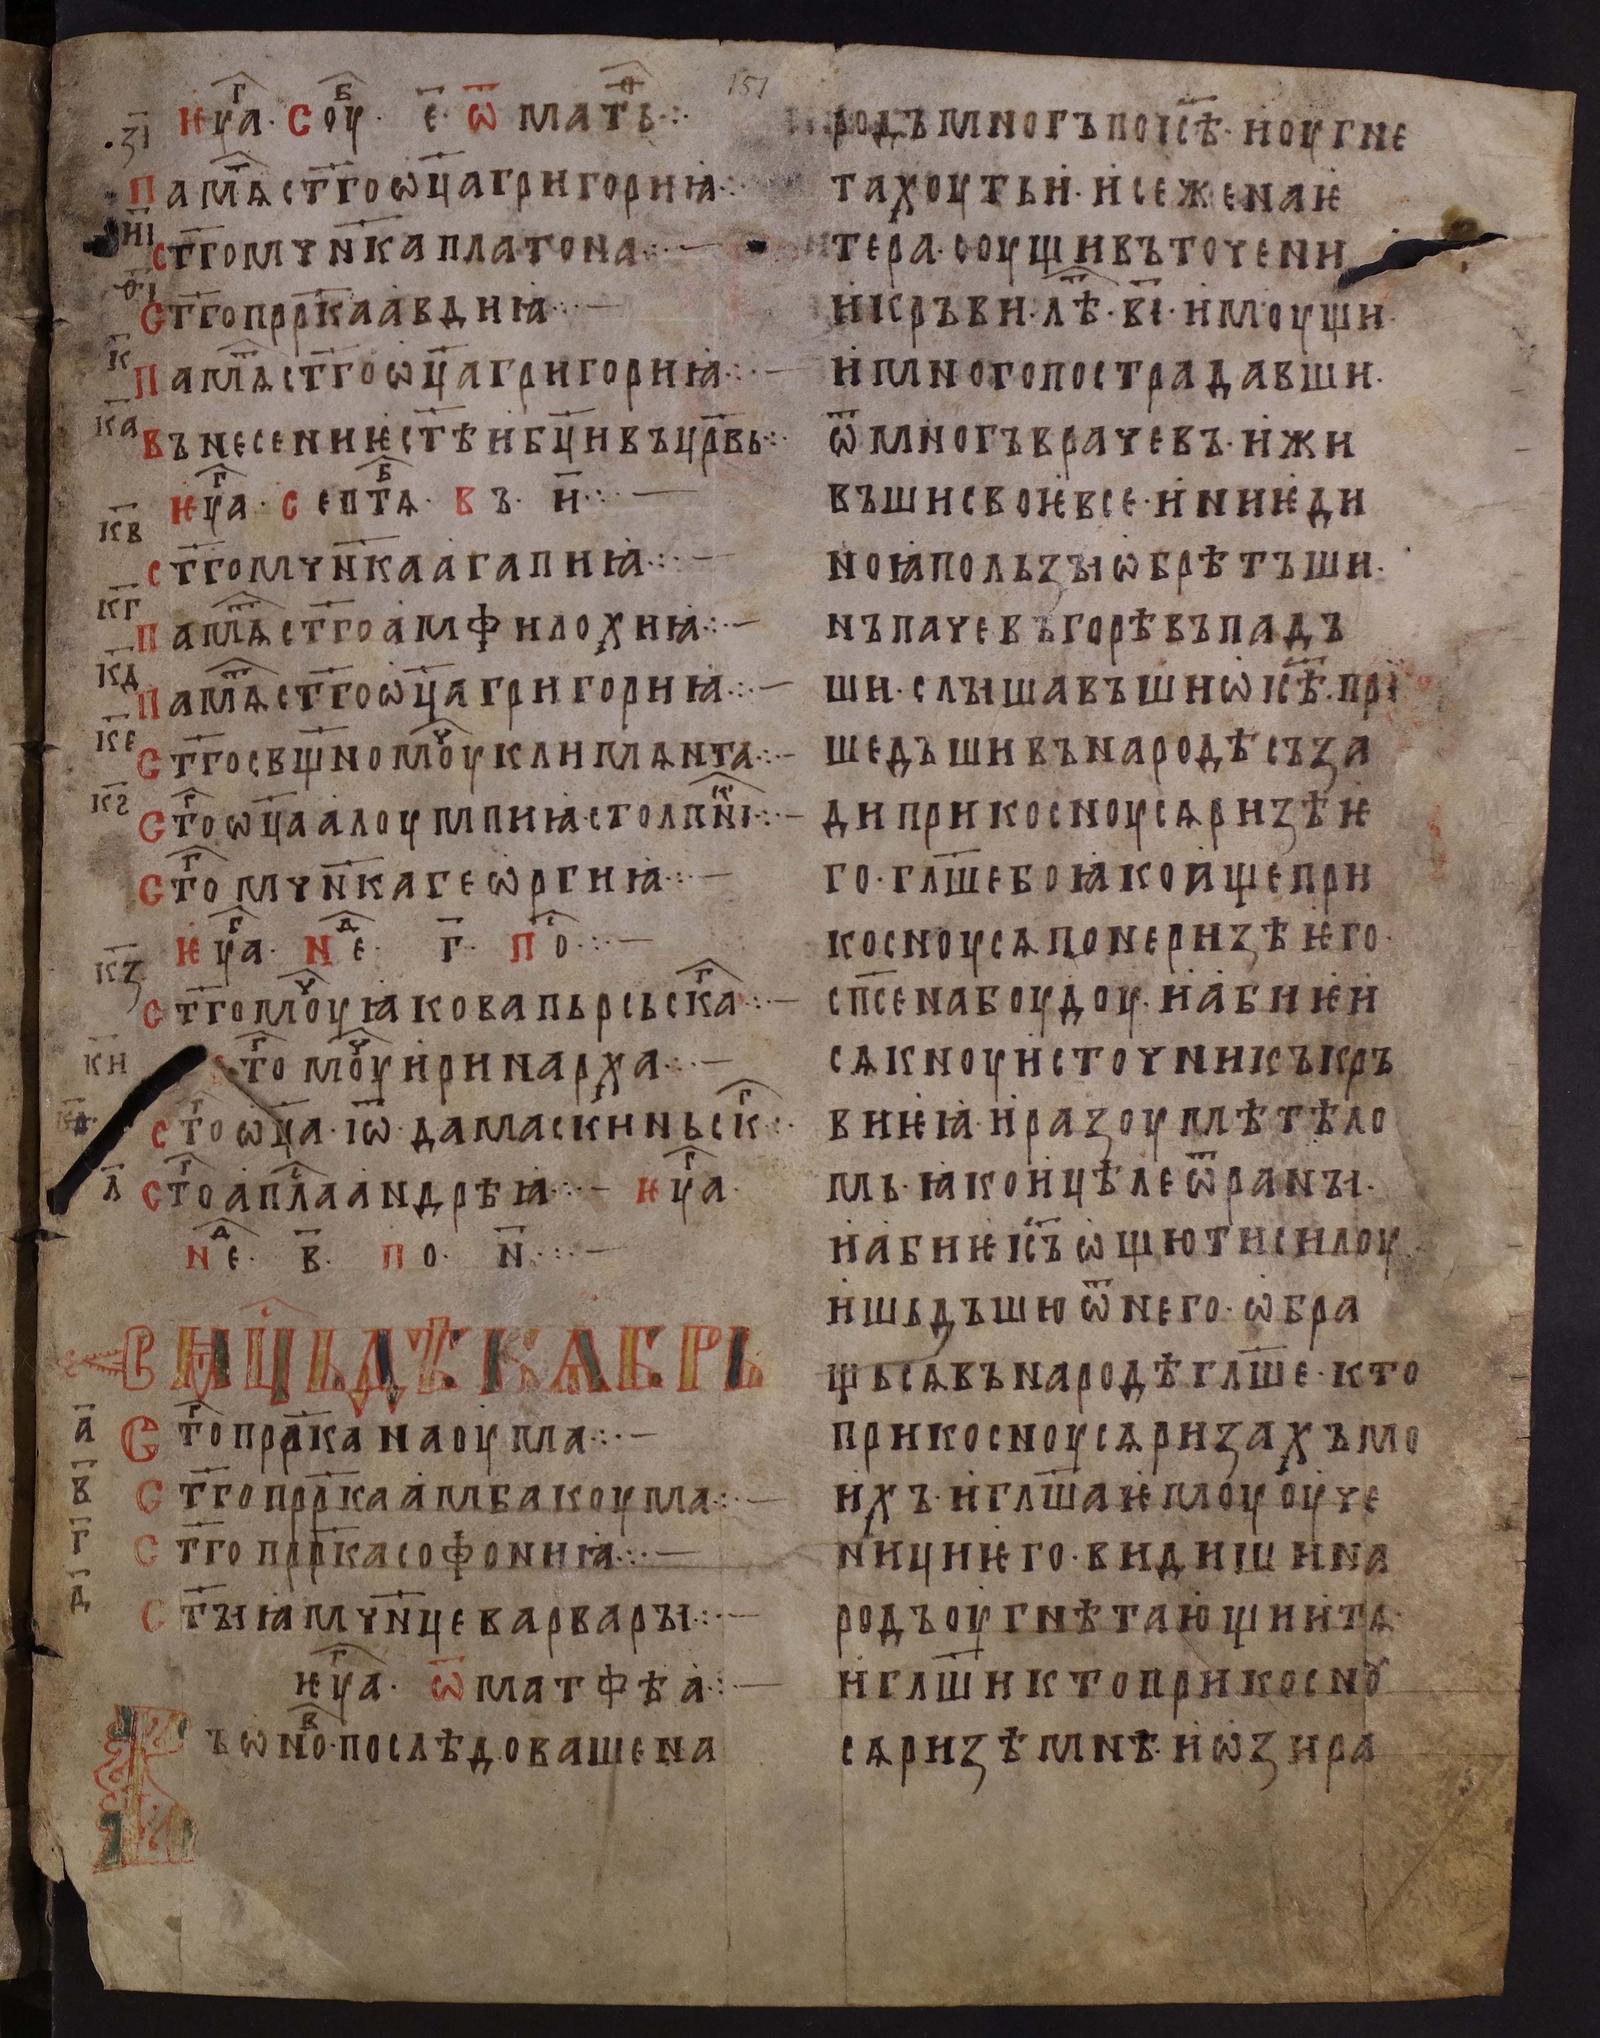 151
ѥуа·соу· е҃· ѿ матⷴь·:·
·з҃і
памѧ ст҃го ѡц҃а григориꙗ·:·
и҃і
ст҃го мчн҃ка платона·:·—
ѳ҃і
ст҃го прр҃ка авдиꙗ·:·—
к҃
памѧ ст҃го ѡц҃а григориꙗ·:·—
к҃а
вънесениѥ ст҃ѣи бц҃и въ цр҃вь·:·
ѥуⷢа· септⷠѧ· въ· и҃·:·—
к҃в
ст҃го мчн҃ка агапиꙗ·:·—
к҃г
памѧ ст҃го амфилохиꙗ·:·—
к҃д
памѧ ст҃го ѡц҃а григориꙗ·:·—
к҃е
ст҃го свщ҃номоⷱу климѧнта·:·—
к҃ѕ
стⷢо ѡц҃а алоумпиꙗ столпниⷦ·:·—
стⷢо мчн҃ка геѡргиꙗ·:·—
ѥуⷢа· неⷣ· г҃· по·:·—
к҃з
ст҃го моⷱу ꙗкова пьрсьскаⷢ·:·—
к҃и
стⷢо моⷱу иринарха·:·—
стⷢо ѡц҃а· іѡ· дамаскиньскⷢ·:·
л҃
стⷢо апⷭла андрѣꙗ·:·— ѥуⷢа·
неⷣ· в҃· по· н҃·:·—
в мц҃ь дѫкабрь
а҃
стⷢо прр҃ка наоума·:·—
в҃
ст҃го прр҃ка амбакоума·:·—
г҃
ст҃го прр҃ка софониꙗ·:·—
д҃
ст҃ыꙗ мчн҃це варвары·:·—
ѥуⷢа· ѿ матфѣа·:·—
въ ѡноⷡ· послѣдоваше на
родъ многъ по іс҃ѣ· и оугне
тахоу тьи· и се жена ѥ
тера· соущи въ точени
и кръви· лѣⷮ· в҃і· имоущи·
и много пострадавши·
ѿ многъ врачевъ· ижи
въши своѥ все· и ни ѥди
ноꙗ пользы ѡбрѣтъши·
нъ паче въ горѣ въпадъ
ши· слышавъши ѡ іс҃ѣ· при
шедъши въ народѣ съза
ди прикосноусѧ ризѣ ѥ
го· гл҃ше бо ꙗко ище при
косноусѧ поне ризѣ ѥго·
сп҃сена боудоу· и абиѥ и
сѧкноу источникъ кръ
ви ѥꙗ· и разоумѣ тѣло
мь· ꙗко ицѣле ѿ раны·
и абиѥ іс҃ъ ѡщюти силоу
ишьдъшю ѿ него· ѡбра
щьсѧ въ народѣ гл҃ше· кто
прикосноусѧ ризахъ мо
ихъ· и гл҃шаѥмоу оуче
ници ѥго· видиши на
родъ оугнѣтающии тѧ·
и гл҃ши кто прикосноу
сѧ ризѣ мнѣ· и ѡзира